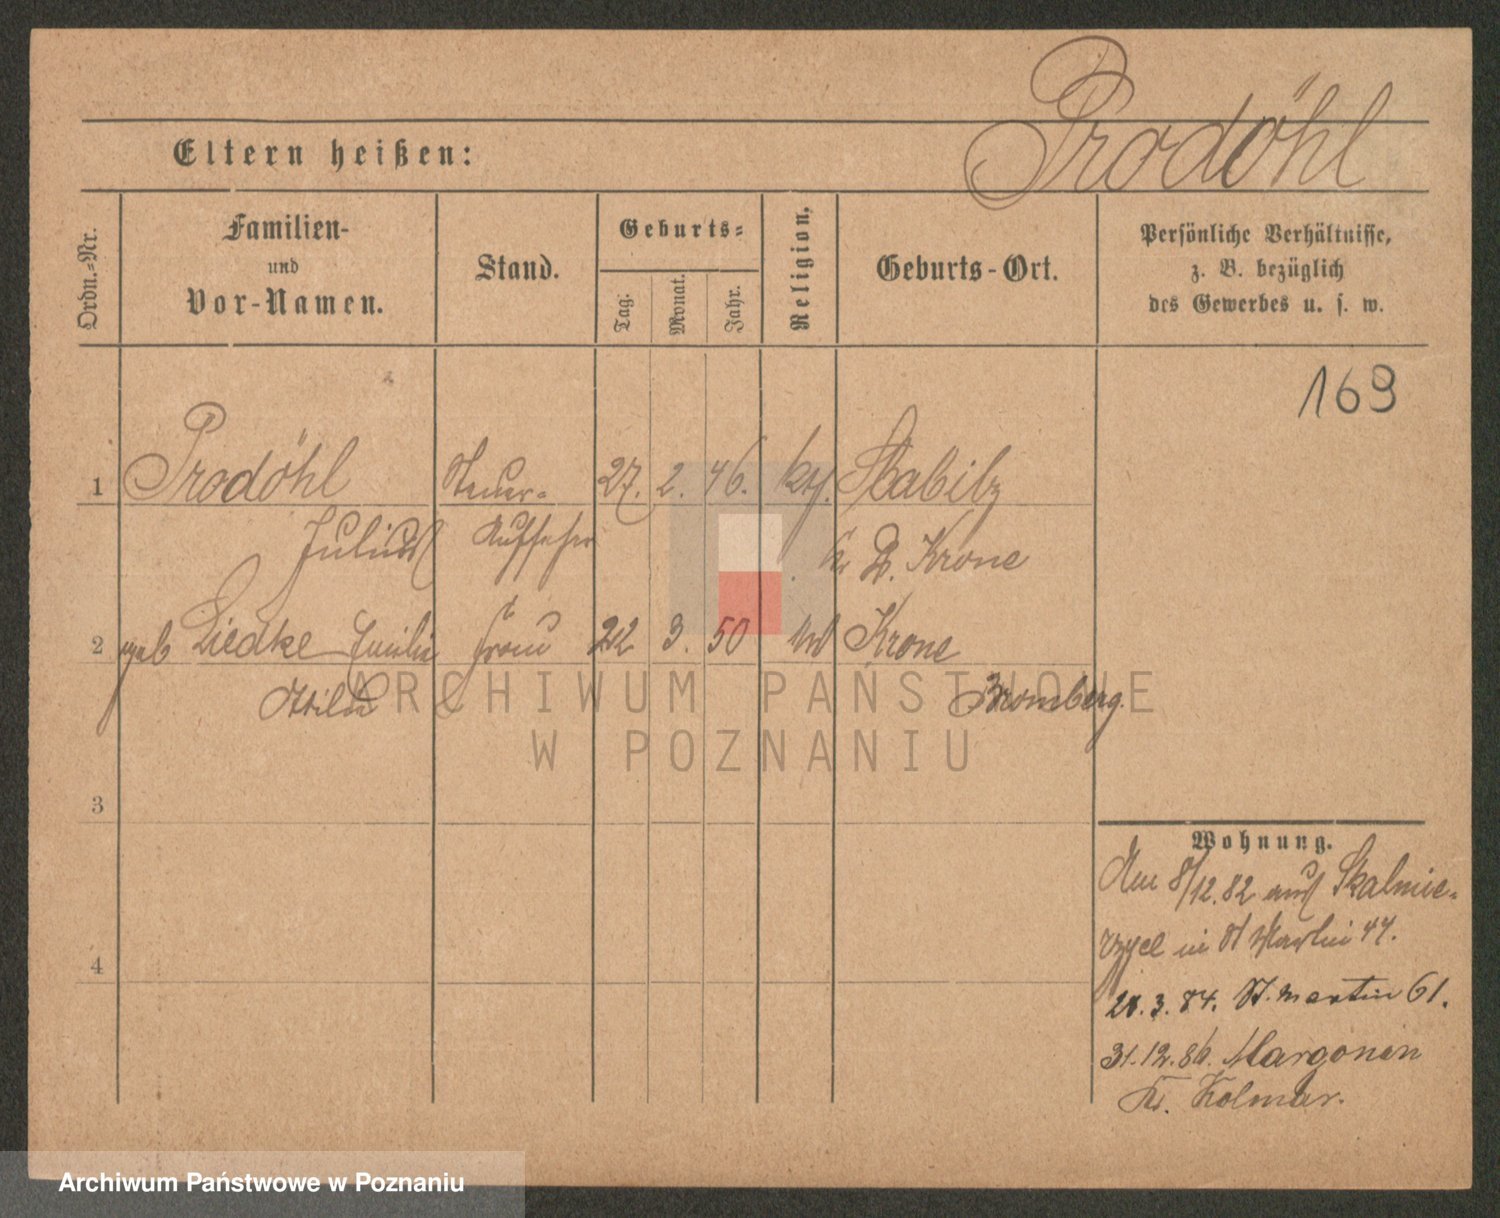 Prodöhl
Eltern heißen:
Ordn.-Nr.
Familien-
und
Vor-Namen.
Stand.
Geburts-
Tag:
Monat.
Jahr.
Religion.
Geburts-Ort.
Persönliche Verhältnisse,
z. B. bezüglich
des Gewerbes u. s. w.
169
1 Prodöhl Steuer- 27. 2. 46. Stabitz
Julius Aufseher Kr D. Krone
2 geb Liedtke Emilie Frau 22 3. 50 Krone
Bromberg.
3
4
Wohnung.
Am 8/12.82 aus Skalmie-
rzyce in St Martin 47.
28.3.84. St. Martin 61.
31.12.86. Margonin
Kr. Kolmar.
ARCHIWUM PAŃSTWOWE
W POZNANIU
Archiwum Państwowe w Poznaniu